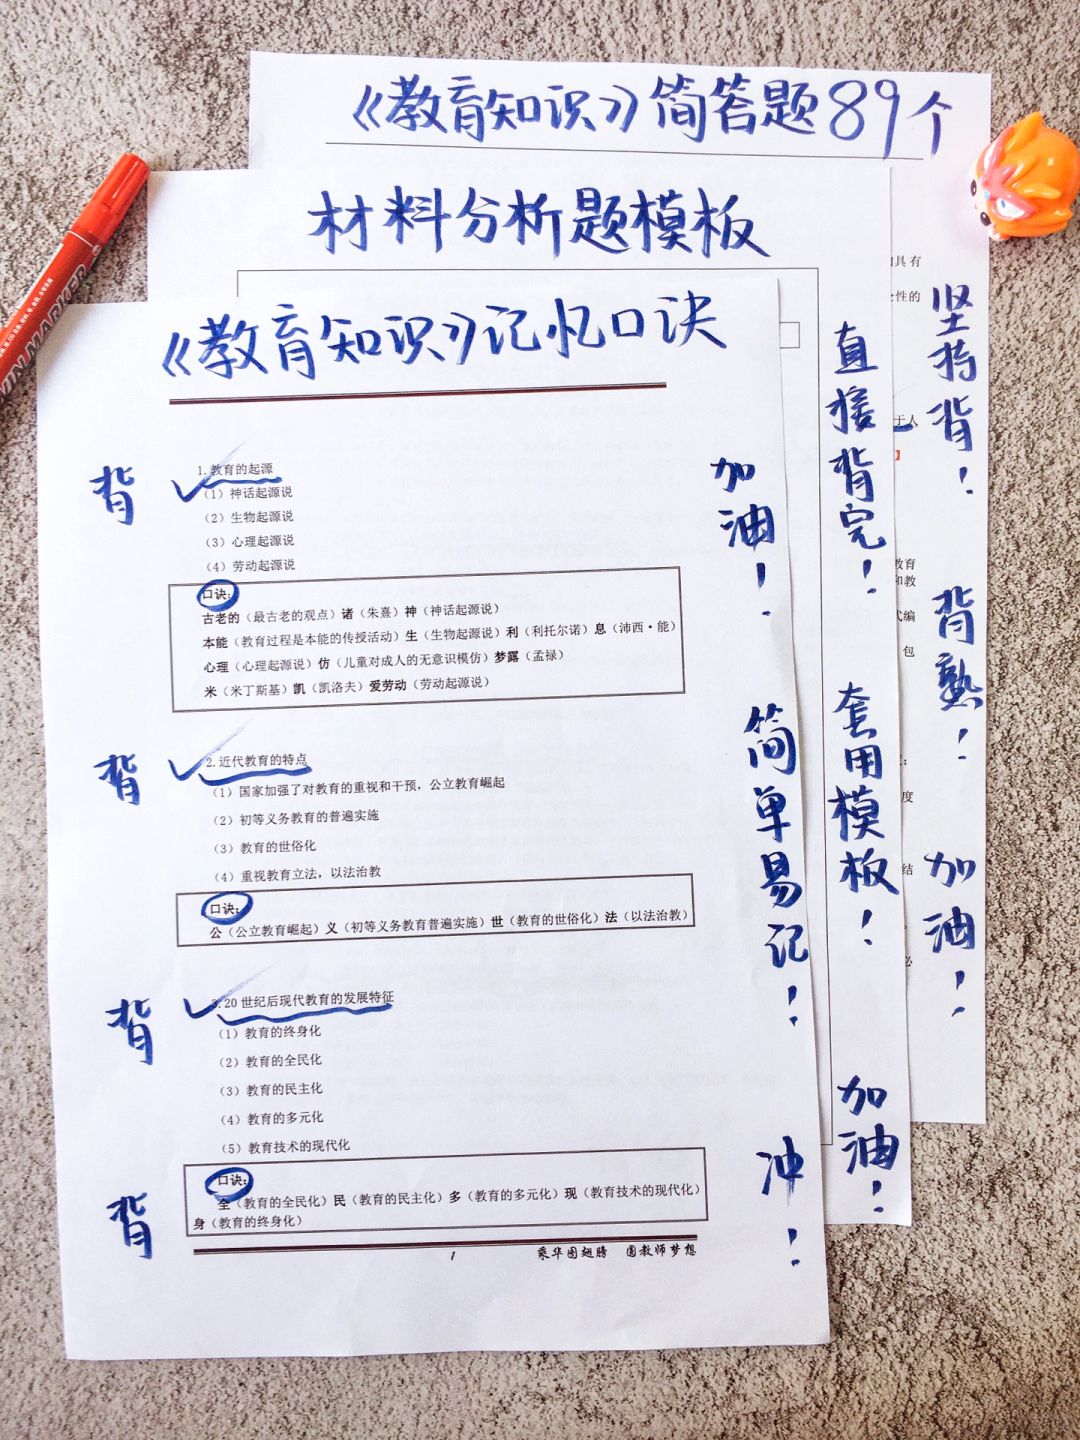 《教育知识》简答题89个
材料分析题模板
《教育知识》记忆口诀
背
1.教育的起源
（1）神话起源说
（2）生物起源说
（3）心理起源说
（4）劳动起源说
口诀：
古老的（最古老的观点）诸（朱熹）神（神话起源说）
本能（教育过程是本能的传授活动）生（生物起源说）利（利托尔诺）息（沛西·能）
心理（心理起源说）仿（儿童对成人的无意识模仿）梦露（孟禄）
米（米丁斯基）凯（凯洛夫）爱劳动（劳动起源说）
背
2.近代教育的特点
（1）国家加强了对教育的重视和干预，公立教育崛起
（2）初等义务教育的普遍实施
（3）教育的世俗化
（4）重视教育立法，以法治教
口诀：
公（公立教育崛起）义（初等义务教育普遍实施）世（教育的世俗化）法（以法治教）
背
3.20世纪后现代教育的发展特征
（1）教育的终身化
（2）教育的全民化
（3）教育的民主化
（4）教育的多元化
（5）教育技术的现代化
背
口诀：
全（教育的全民化）民（教育的民主化）多（教育的多元化）现（教育技术的现代化）
身（教育的终身化）
1 乘华图翅膀 圆教师梦想
加油！
简单易记！
冲！
直接背完！
套用模板！
加油！
坚持背！
背熟！
加油！
具有
性的
于人
教育
和教
编
包
度
结
必
MARKER